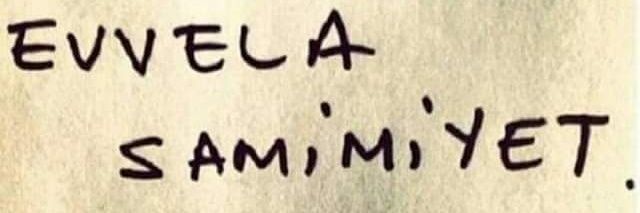 EVVELA
SAMİMİYET.